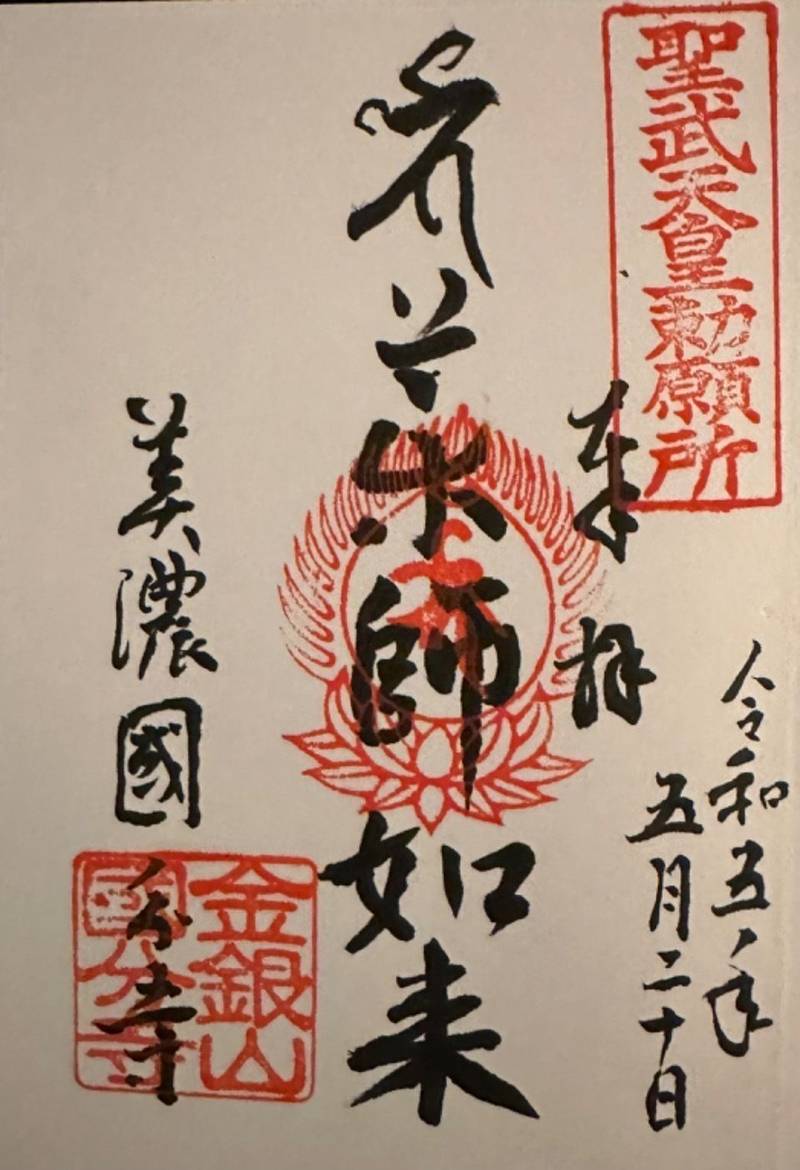 聖武天皇勅願所
奉拝
令和五年
五月二十日
薬師如来
美濃國分寺
金銀山
國分寺